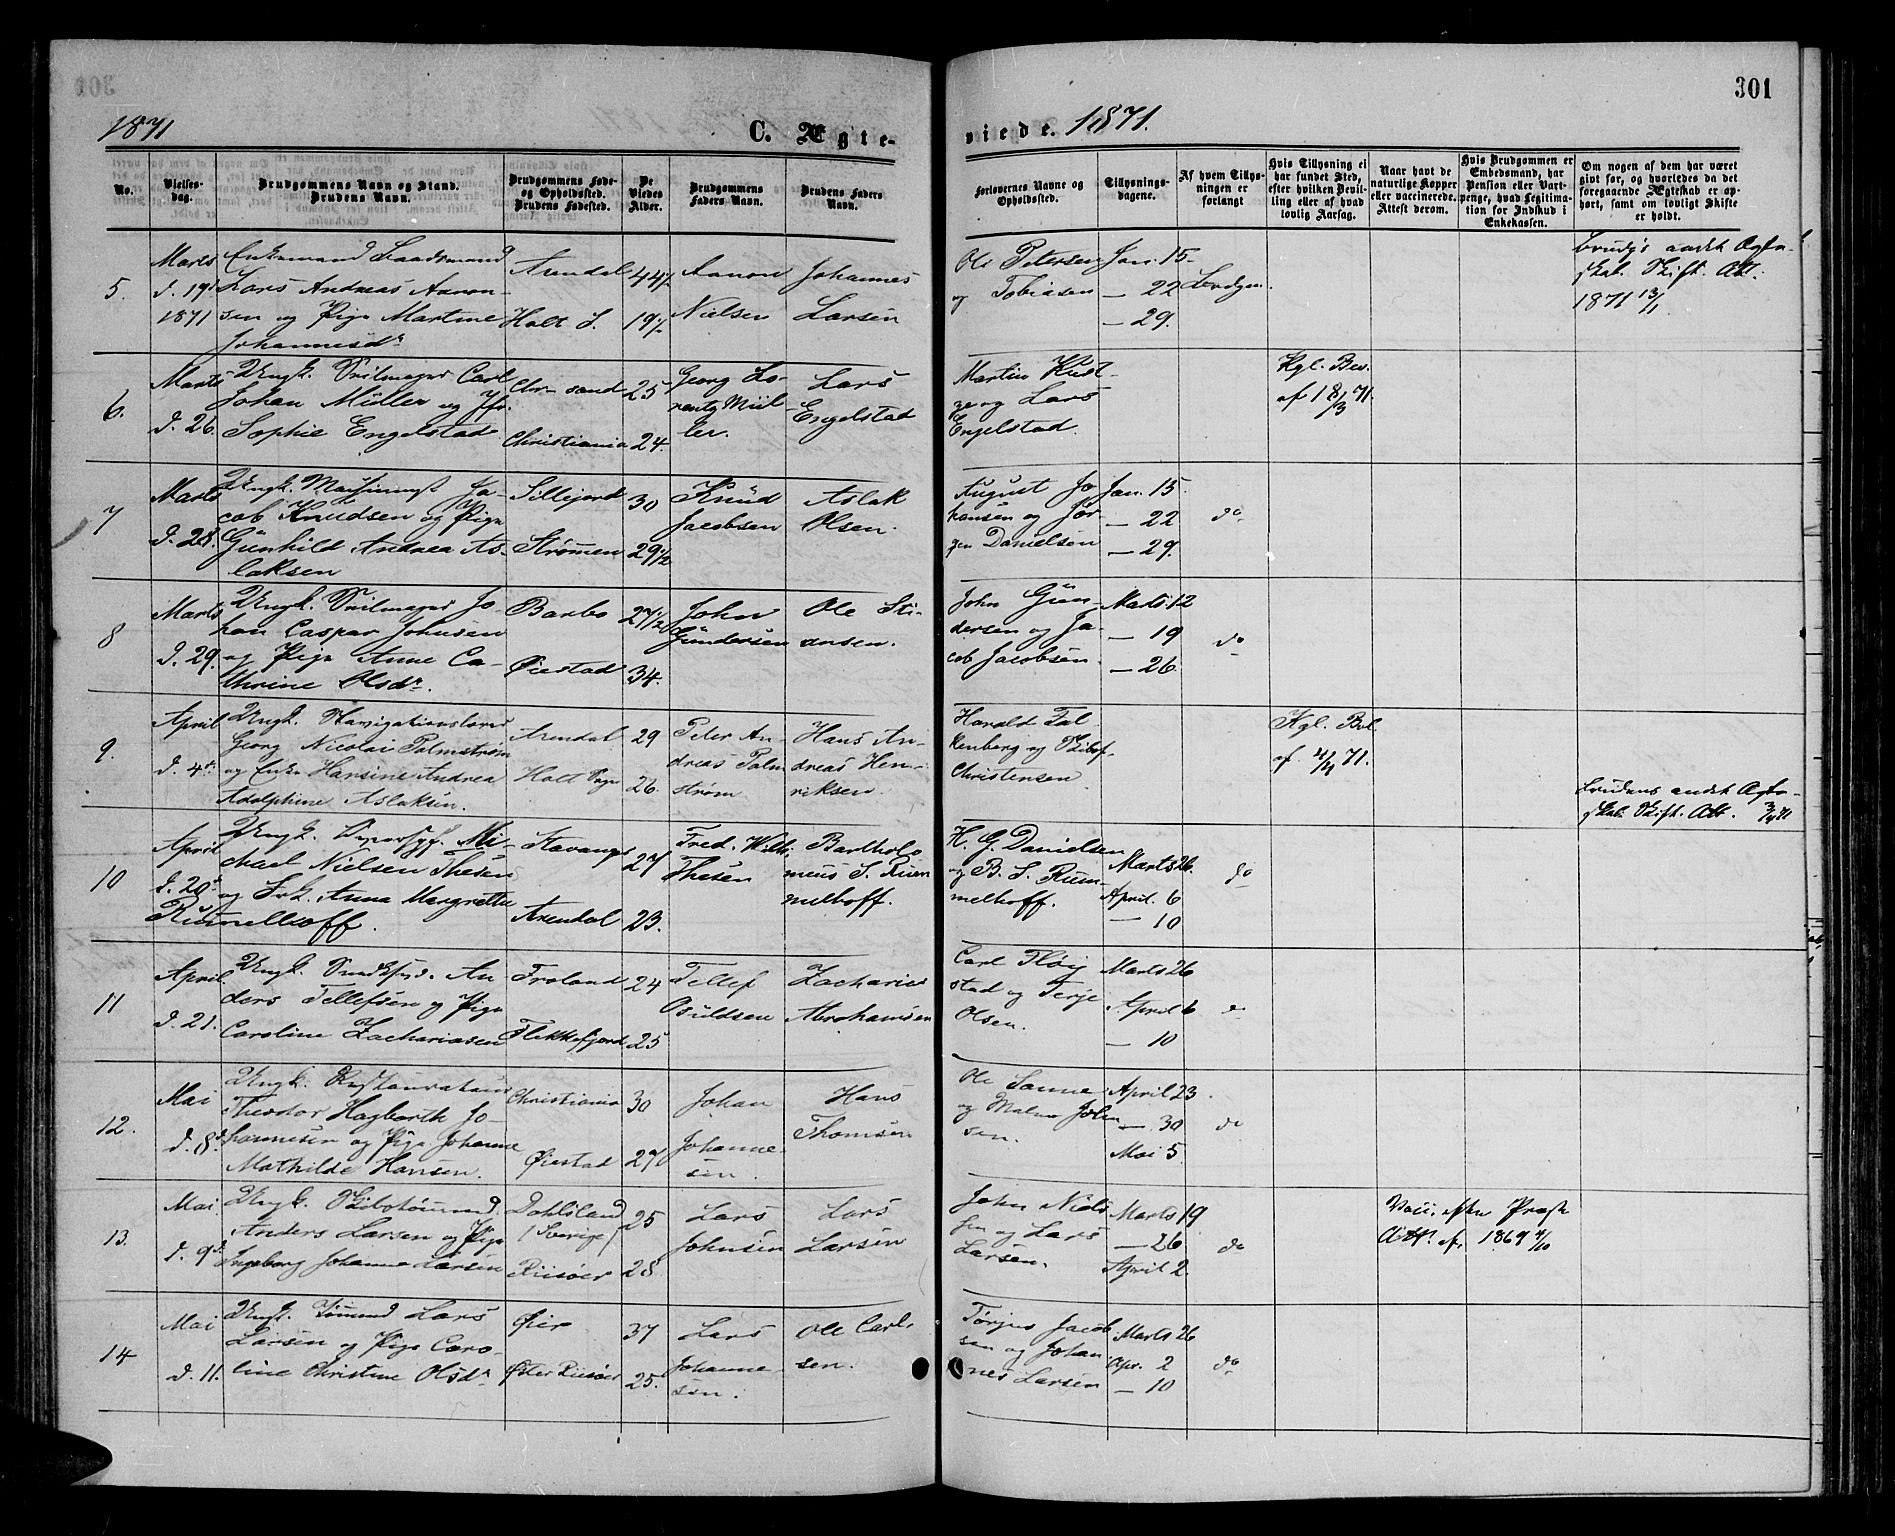 301
1871
C. Ægte-
viede. 1871.
No.
Vielses-
dag.
Brudgommens Navn og Stand.
Brudens Navn.
Brudgommens Føde-
og Opholdssted.
Brudens Fødested.
De
Viedes
Alder.
Brudgommens
Faders Navn.
Brudens Faders
Navn.
Forlovernes Navne og
Opholdssted.
Tillysnings-
dagene.
Af hvem Tillys-
ningen er
forlangt
Hvis Tillysning ei
har fundet Sted,
efter hvilken Bevil-
ling eller af hvad
lovlig Aarsag.
Naar havt de
naturlige Kopper
eller vaccinerede.
Attest derom.
Hvis Brudgommen er
Embedsmand, har
Pension eller Vart-
penge, hvad Legitima-
tion for Indskud i
Enkekassen.
Om nogen af dem har været
givt før, og hvorledes da det
foregaaende Ægteskab er op-
hørt, samt om lovligt Skifte
er holdt.
5.
Marts
d. 19d
1871
Enkemand
Lars Andreas Aanon-
sen og Pige Martine
Johannesdr
Arendal
Holt S.
44½
19½
Aanon
Nielsen
Johannes
Larsen
Ole Petersen
og Tobiasen
Jan. 15
— 22
— 29.
Brudgom.
Brudg's andet Ægte-
skab. Skift. Att.
1871 13/1
6.
Marts
d. 26.
Ungk. Seilmager Carl
Johan Müller og Jfr.
Sophie Engelstad
Chr-sand
Christiania
25
24.
Georg Lo-
rentz Mül-
ler.
Lars
Engelstad
Martin Küst-
ge og Lars
Engelstad.
Kgl. Bev.
af 18/3 71.
7
Marts
d. 28.
Ungk. Maskinmst. Ja-
cob Knudsen og Pige
Gunhild Andrea As-
laksen
Sillejord
Strømen
30
29½
Knud
Jacobsen
Aslak
Olsen.
August Jo
hansen og Jør-
gen Danielsen
Jan. 15.
— 22
— 29.
do
8
Marts
d. 29.
Ungk. Seilmager Jo-
han Caspar Johnsen
og Pige Anne Ca-
thrine Olsdr.
Barbo
Øiestad
27½
34.
John
Gundersen
Ole Sti-
ansen.
John Gun-
dersen og Ja-
cob Jacobsen.
Marts 12
— 19
— 26.
do
9.
April
d. 4de
Ungk. Navigationslærer
Georg Nicolai Palmstrøm
og Enke Hansine Andrea
Adolphine Aslaksen.
Arendal
Holt Sogn
29
26.
Peter An-
dreas Palm
strøm
Hans An-
dreas Hen-
riksen.
Harald Fal
kenberg og Skibsf.
Christensen
Kgl. Bvl.
af 4/4 71.
Brudens andet Ægte-
skab. Skift. Att. 3/4 71
10
April
d. 20de
Ungk. Mi-
chael Nielsen Thesen
og Frk. Anna Margrethe
Rummelhoff.
Stavanger
Arendal
27
23.
Fred. Wilh.
Thesen
Bartholo
meus S. Rum
melhoff.
H. G. Danielsen
og B. S. Rum-
melhoff.
Marts 26.
April 6
— 10
do
11
April
d. 21.
Ungk. An
ders Tellefsen og Pige
Caroline Zachariasen
Froland
Flekkefjord
24
25
Tellef
Osuldsen
Zacharias
Abrahamsen
Carl Fløi
stad og Terje
Olsen.
Marts 26
April 6
— 10
do
12.
Mai
d. 8d
Ungk. Restauratør
Theodor Hagbarth Jo-
hannesen og Pige Johanne
Mathilde Hansen.
Christiania
Øiestad
30
27
Johan
Johanne-
sen.
Hans
Thomsen
Ole Sanne
og
sen.
April 23.
— 30
Mai 5
do
13.
Mai
d. 9d
Ungk. Skibstømmmd.
Anders Larsen og Pige
Ingeborg Johanne Larsen
Dahlsland
/Sverige/
Riisøer
25
28.
Lars
Johnsen
Lars
Larsen
John Niel-
sen og Lars
Larsen.
Marts 19
— 26
April 2.
do
Vacc. efter Præste
Att. af 1869 4/10
14
Mai
d. 11.
Ungk. Tømmd Lars
Larsen og Pige Caro-
line Christine Olsdr
Øier
Øster Riisøer
37
25.
Lars
Johanne-
sen.
Ole Carl-
sen.
Tørjus Jacob
sen og Johan-
nes Larsen
Marts 26
Apr. 2
— 10
do